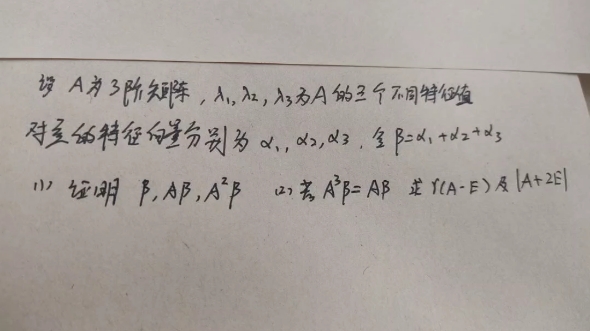 设 A为3阶矩阵，λ₁,λ₂,λ₃为A的三个不同特征值
对应的特征向量分别为 α₁,α₂,α3, 令 β=α₁+α₂+α₃
(1) 证明 β, Aβ, A²β (2) 若 A³β=Aβ 求 r(A-E)及|A+2E|